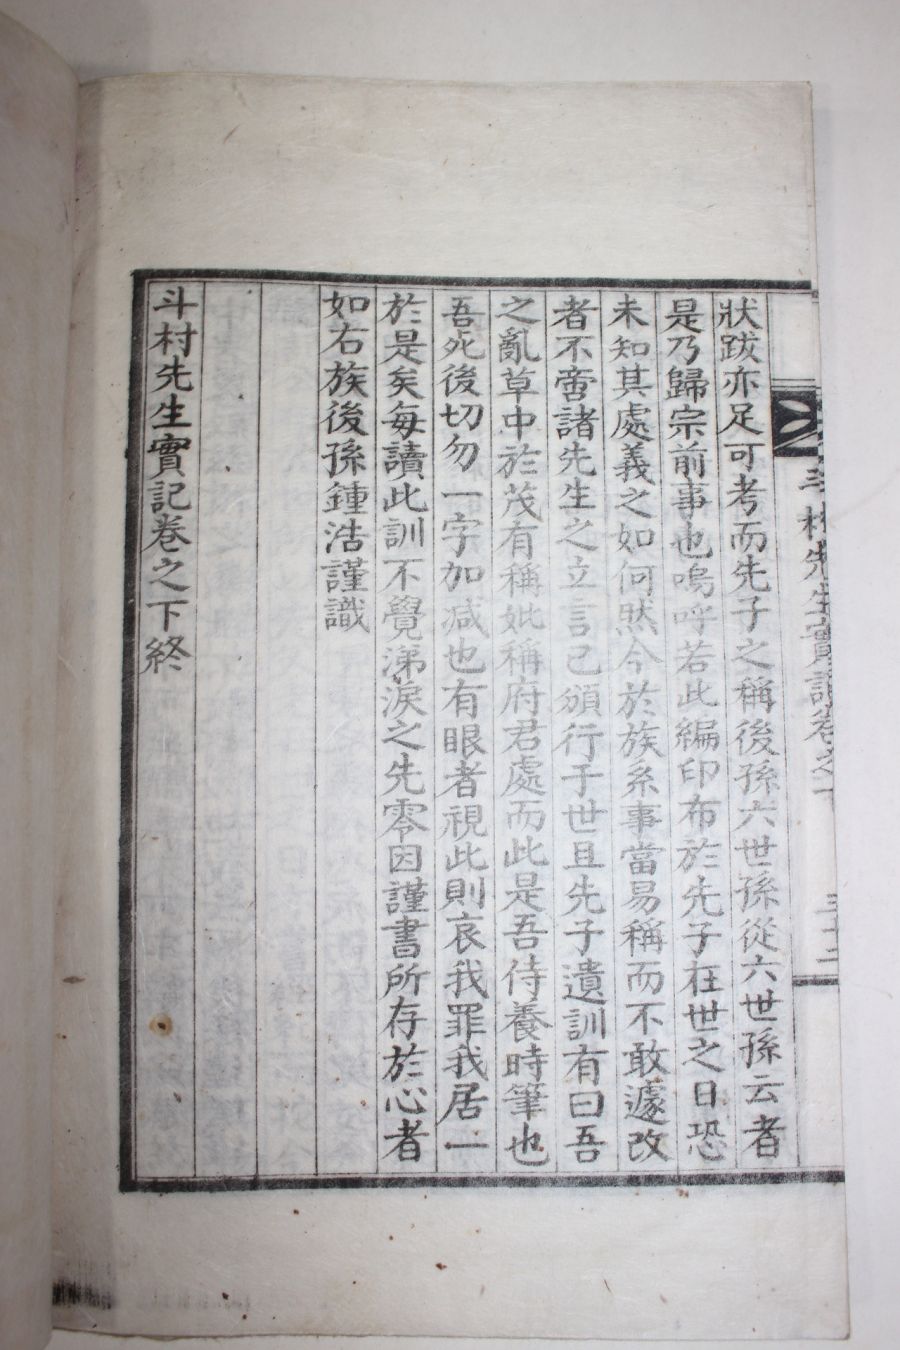 斗村先生實記卷之下
三十二
狀跋亦足可考而先子之稱後孫六世孫從六世孫云者
是乃歸宗前事也嗚呼若此編印布於先子在世之日恐
未知其處義之如何然今於族系事當易稱而不敢遽改
者不啻諸先生之立言已頒行于世且先子遺訓有曰吾
之亂草中於茂有稱妣稱府君處而此是吾侍養時筆也
吾死後切勿一字加减也有眼者視此則哀我罪我居一
於是矣每讀此訓不覺涕淚之先零因謹書所存於心者
如右族後孫鍾浩謹識
斗村先生實記卷之下終